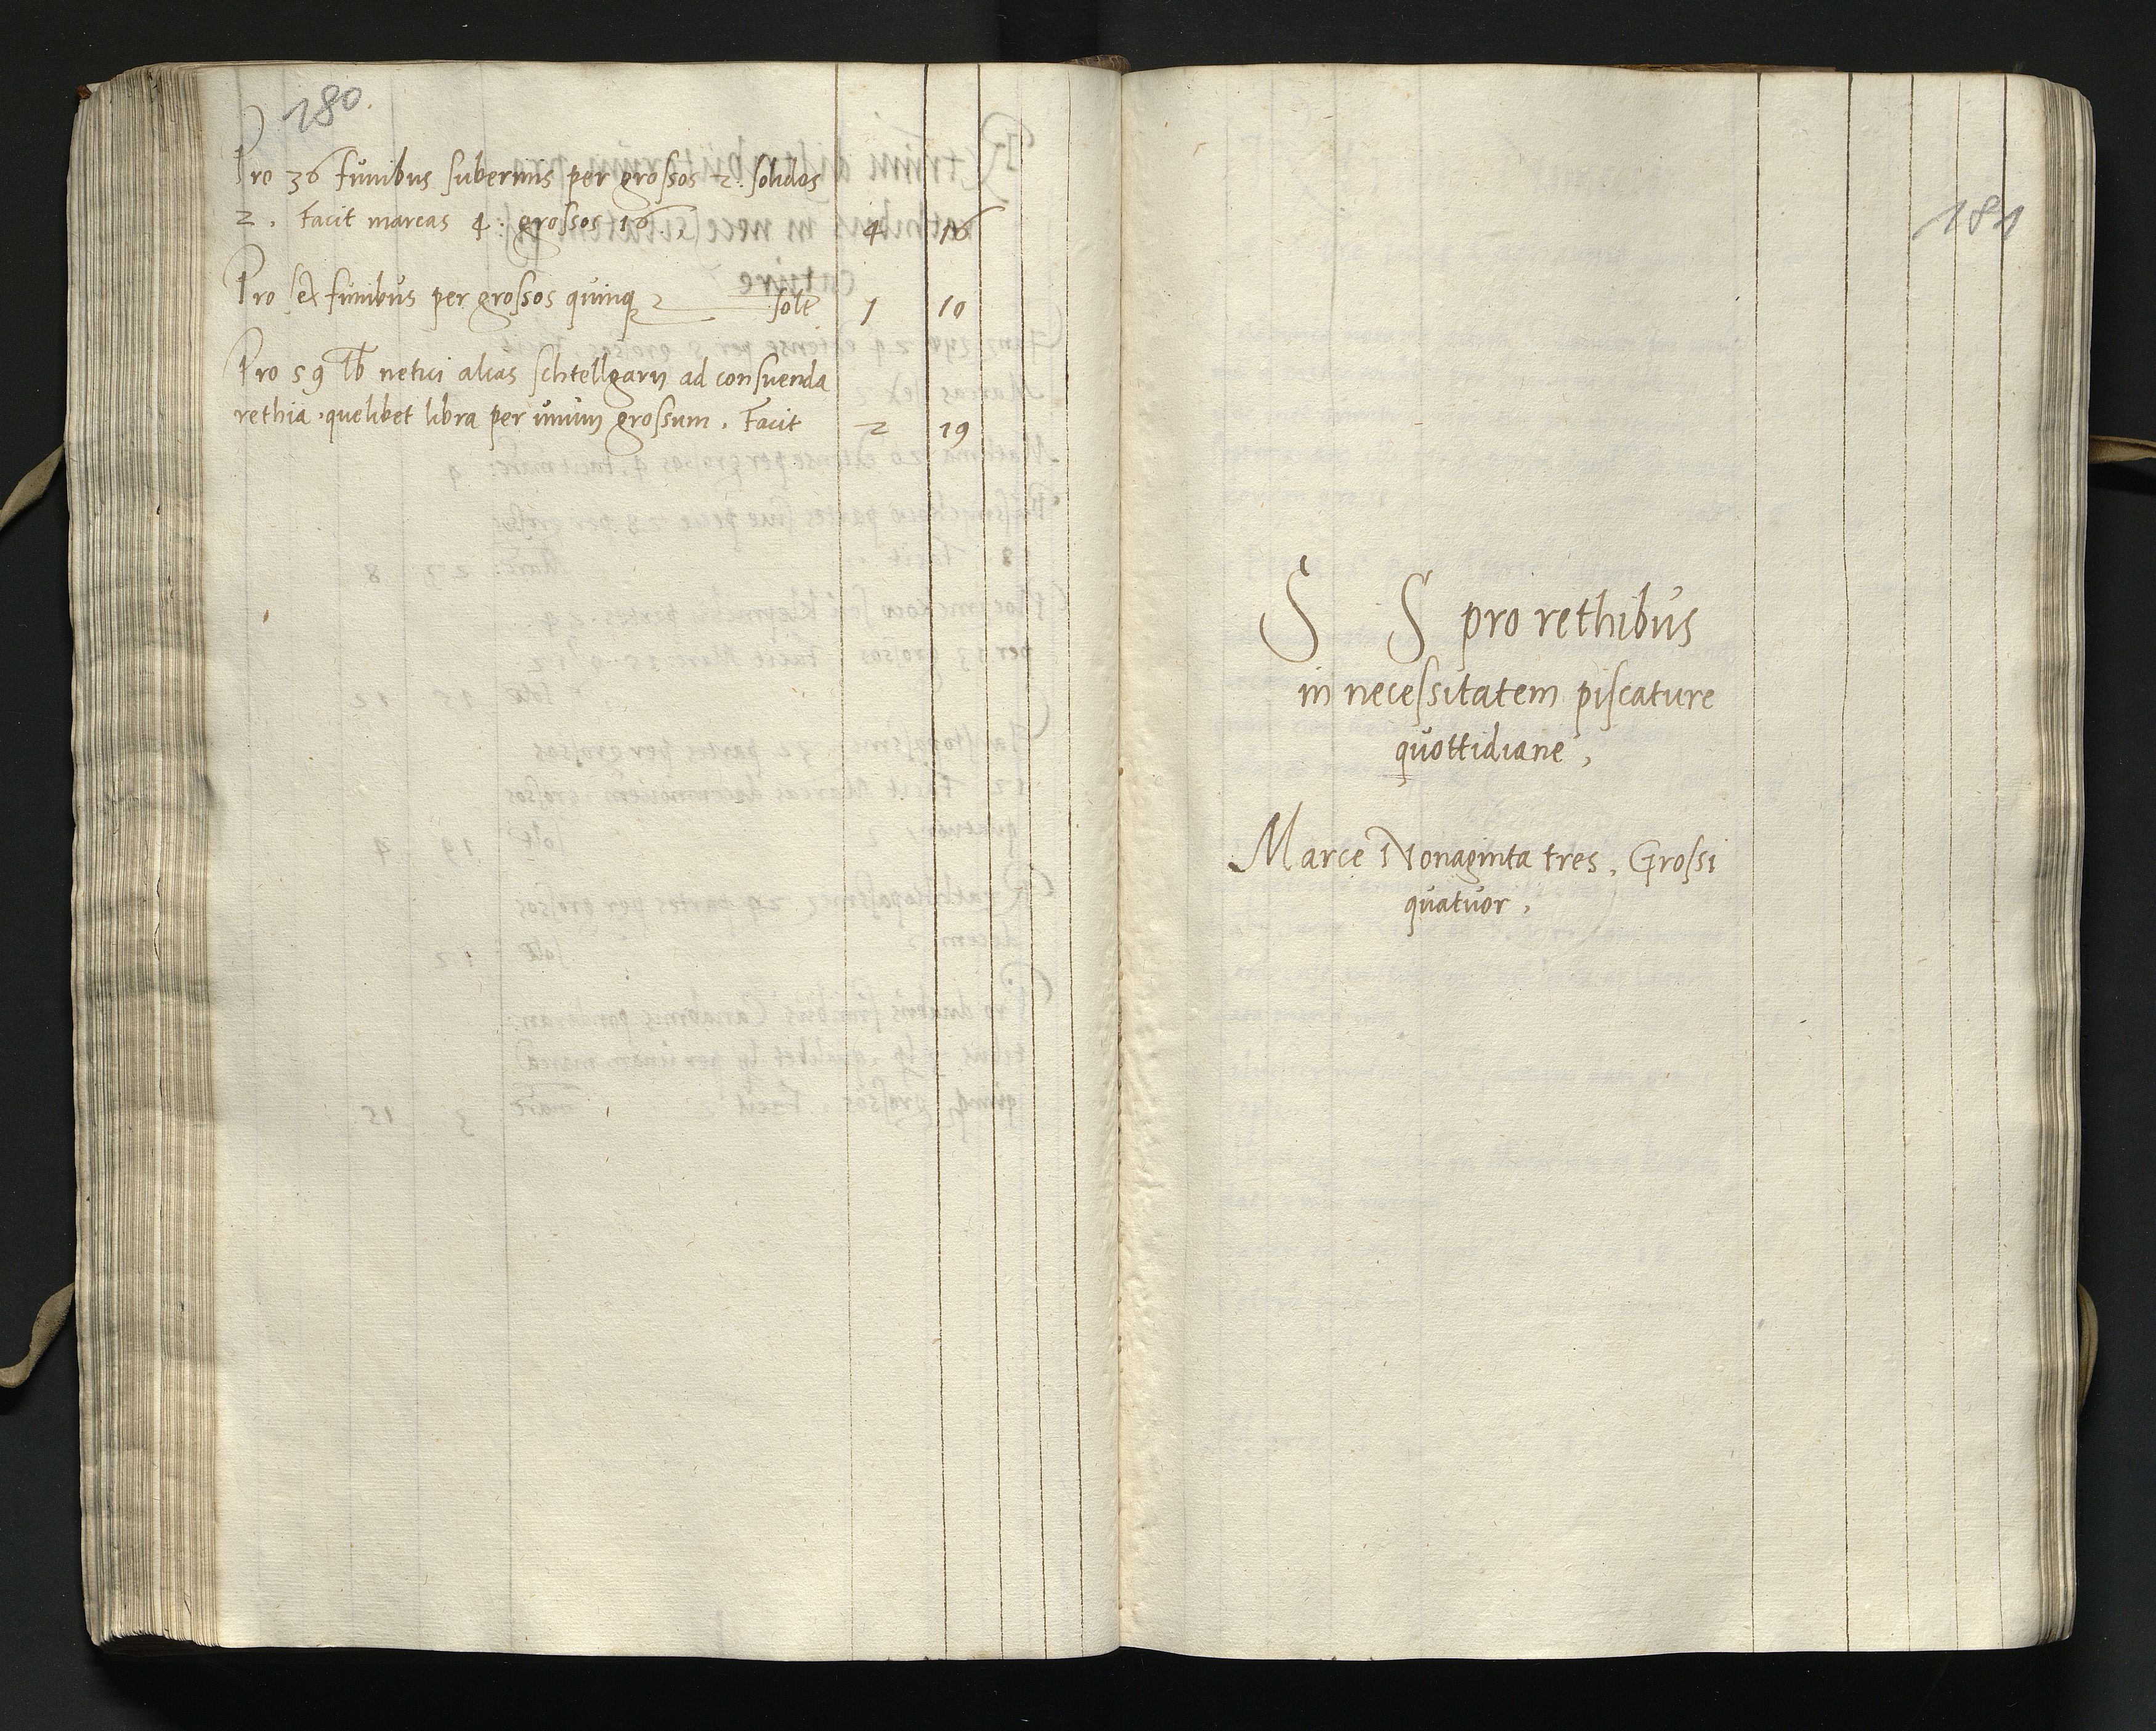 180.
Pro 36 funibus suberinis per grossos 2. solidos
2. Facit marcas 4: grossos 16. 4 16
Pro sex funibus per grossos quinq solt 1 10
Pro 59 lb netici alias schtellgarn ad consuenda
rethia, quelibet libra per unum grossum. Facit 2 19
181
S S pro rethibus
in necessitatem piscature
quottidiane,
Marce Nonaginta tres, Grossi
quatuor,